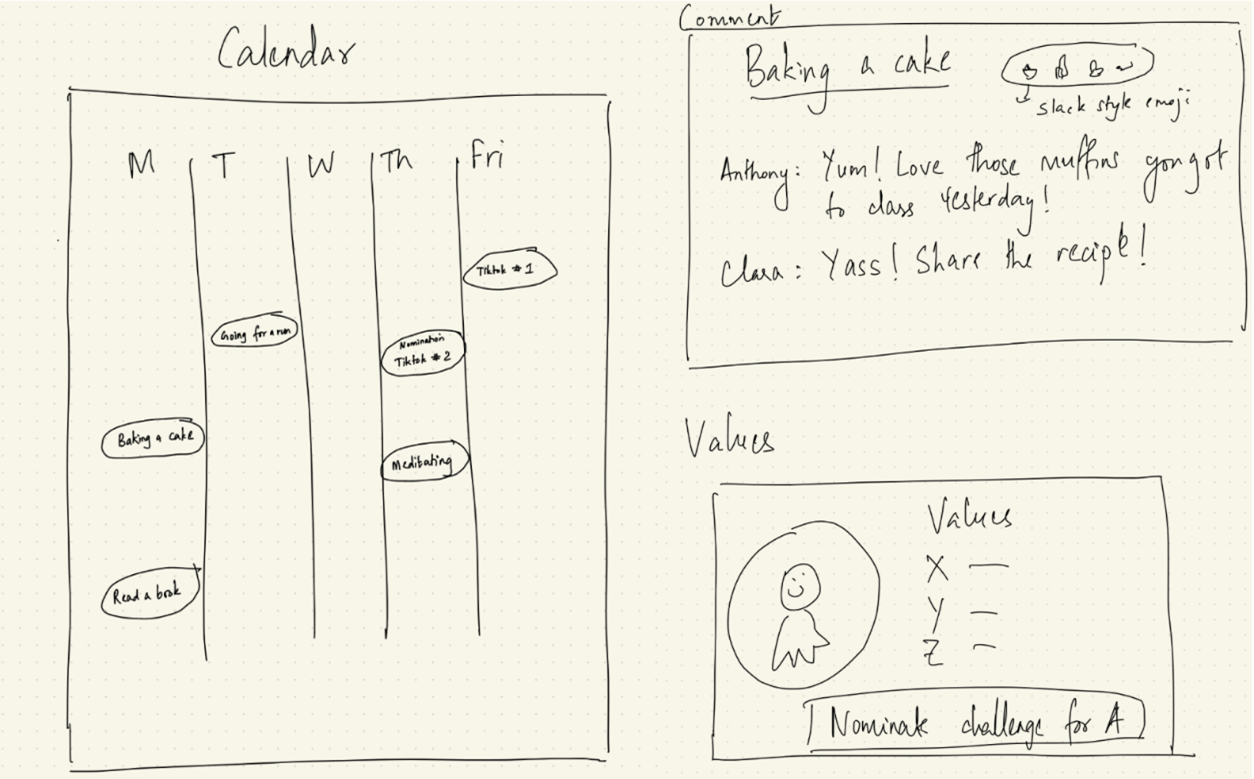 Calendar
M T W Th Fri
Tiktok #1
Going for a run
Nomination
Tiktok #2
Baking a cake
Meditating
Read a book
Comment
Baking a cake
slack style emoji
Anthony: Yum! Love those muffins you got
to class yesterday!
Clara: Yass! Share the recipe!
Values
Values
X —
Y —
Z —
Nominate challenge for A